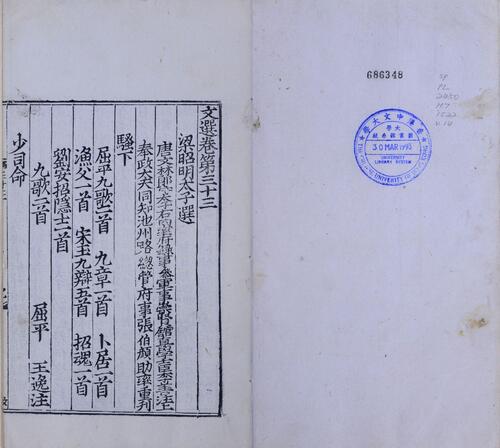 文選卷第三十三
梁昭明太子選
唐文林郎守太子右內率府錄事參軍事崇賢館直學士臣李善注上
奉政大夫同知池州路總管府事張伯顏助率重刊
騷下
屈平九歌二首 九章一首 卜居一首
漁父一首 宋玉九辯五首 招魂一首
劉安招隱士一首
九歌二首 屈平 王逸注
少司命
686348
PL
2450
H7
1522
香港中文大學
大學
圖書館系統
30 MAR 1993
UNIVERSITY
LIBRARY SYSTEM
THE CHINESE UNIVERSITY OF HONG KONG